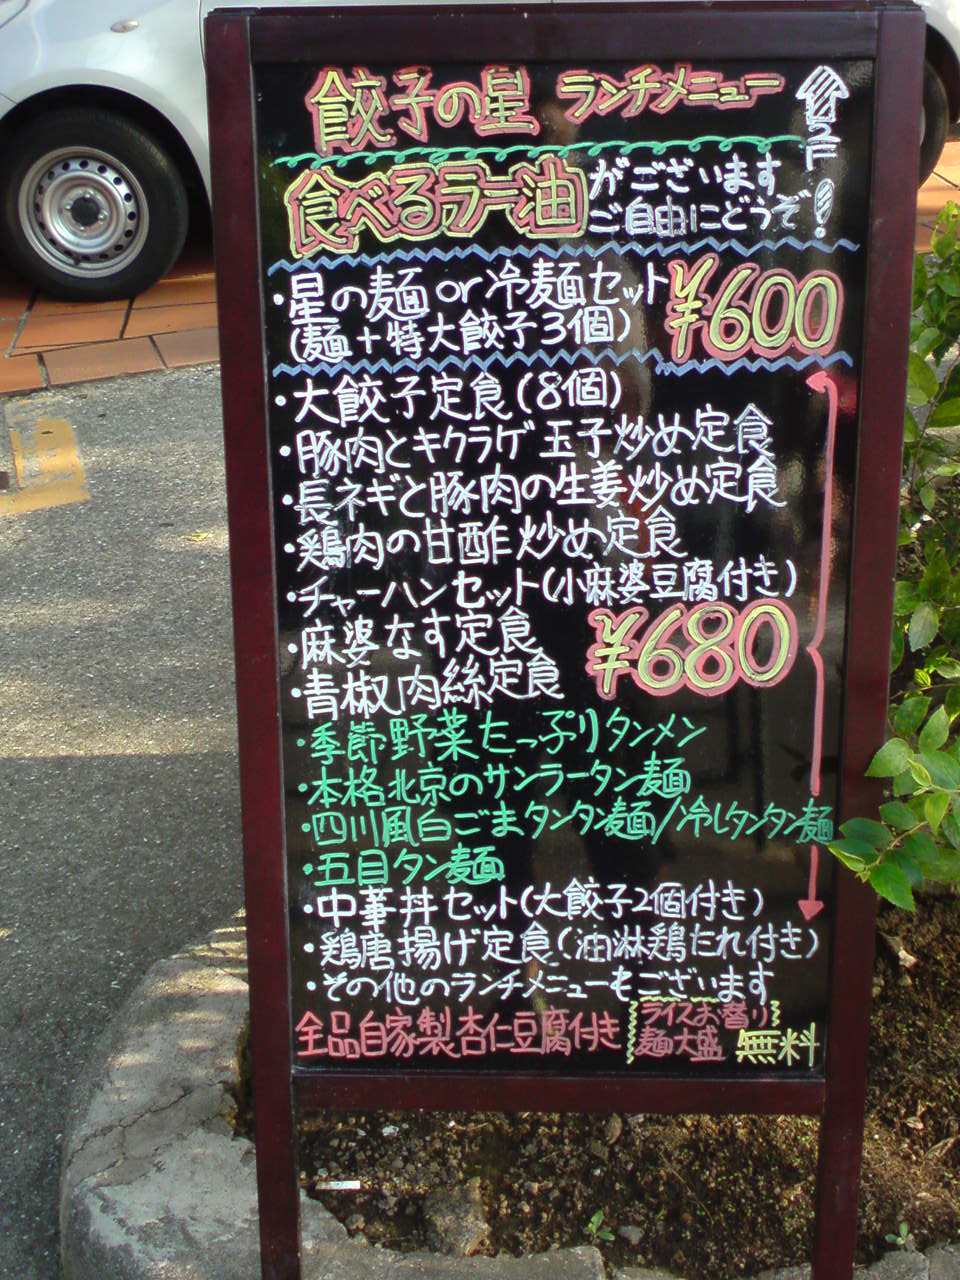 餃子の星 ランチメニュー ↑2F
食べるラー油がございます
ご自由にどうぞ!
・星の麺or冷麺セット ¥600
(麺+特大餃子3個)
・大餃子定食(8個)
・豚肉とキクラゲ玉子炒め定食
・長ネギと豚肉の生姜炒め定食
・鶏肉の甘酢炒め定食
・チャーハンセット(小麻婆豆腐付き)
・麻婆なす定食
・青椒肉絲定食 ¥680
・季節野菜たっぷりタンメン
・本格北京のサンラータン麺
・四川風白ごまタンタン麺/冷しタンタン麺
・五目タン麺
・中華丼セット(大餃子2個付き)
・鶏唐揚げ定食(油淋鶏たれ付き)
・その他のランチメニューもございます
全品自家製杏仁豆腐付き
ライスお替り
麺大盛 無料